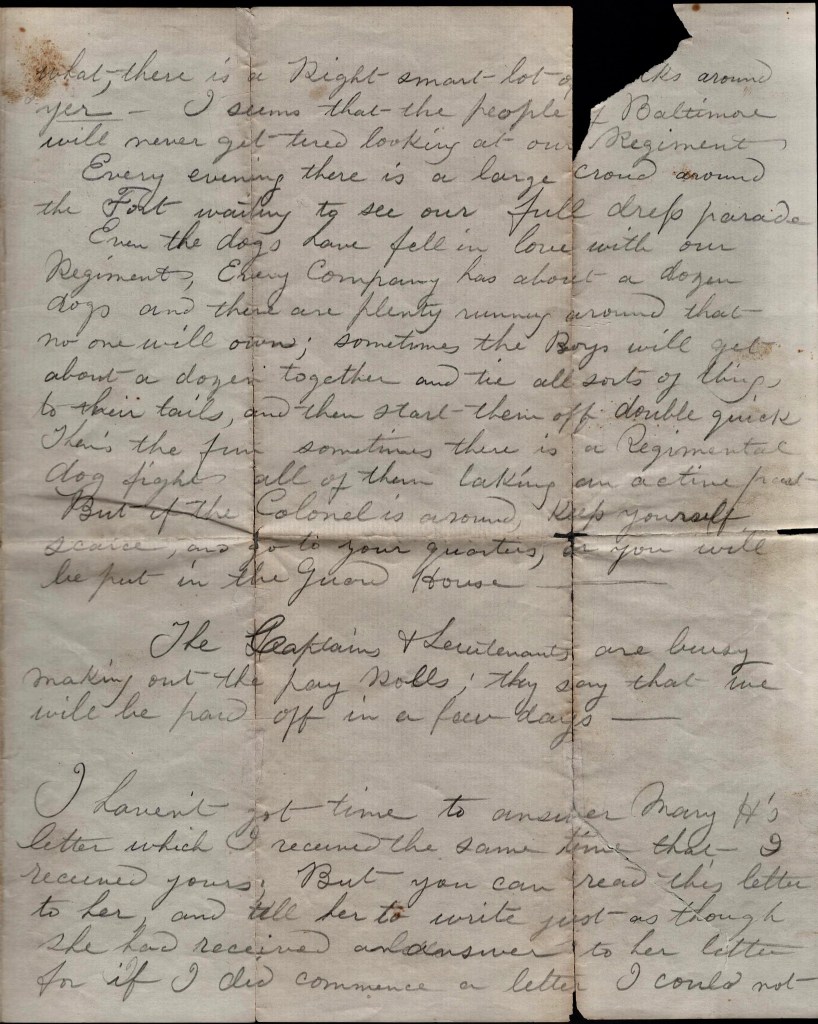 what, there is a Right smart lot around
yer — I seems that the people Baltimore
will never get tired looking at our Regiment
Every evening there is a large croud around
the Fort waiting to see our full dress parade
Even the dogs have fell in love with our
Regiment, Every Company has about a dozen
dogs and there are plenty running around that
no one will own; sometimes the Boys will get
about a dozen together and tie all sorts of things
to their tails, and then start them off double quick
Then's the fun sometimes there is a Regimental
dog fight all of them taking an active part
But if the Colonel is around, keep yourself
scarce, and go to your quarters, or you will
be put in the Guard House —
The Captains & Lieutenants are busy
making out the pay Rolls; they say that we
will be paid off in a few days —
I haven't got time to answer Mary H's
letter which I received the same time that I
received yours; But you can read this letter
to her, and tell her to write just as though
she had received an answer to her letter
for if I did commence a letter I could not